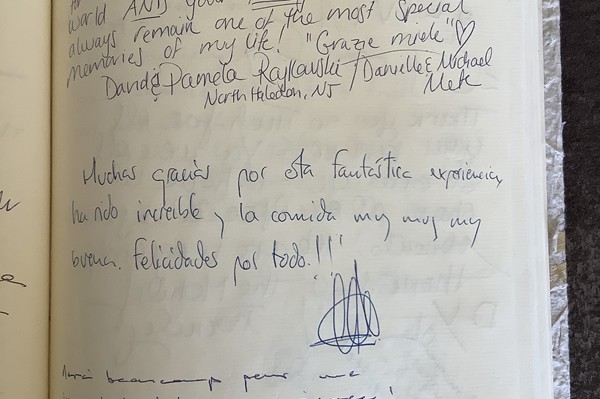 world AND your
always remain one of the most special
memories of my life! "Grazie miele" ♡
David & Pamela Rajkowski / Danielle & Michael
North Haledon, NJ
Muchas gracias por esta fantástica experiencia,
ha sido increíble y la comida muy muy muy
buena. Felicidades por todo!!!
beaucoup pour une